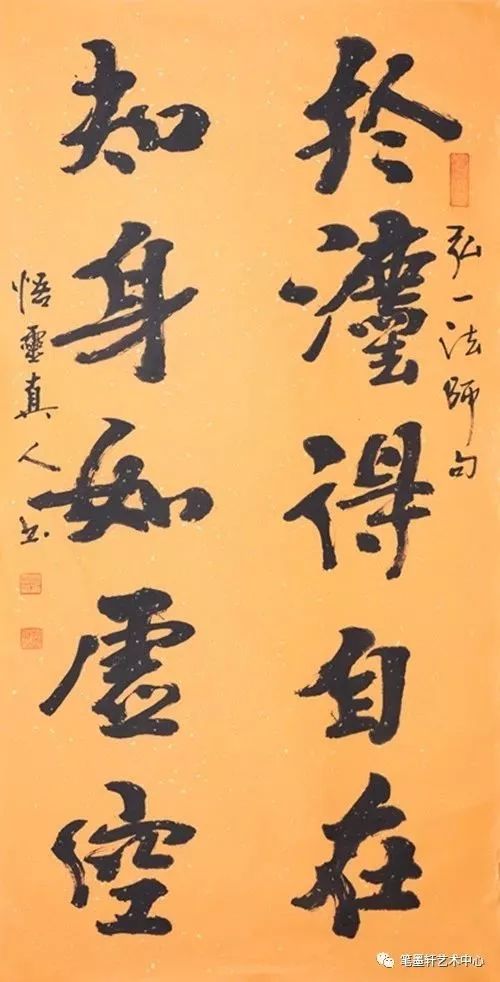 弘一法師句
於灋得自在
知身如虛空
悟靈真人书
笔墨轩艺术中心